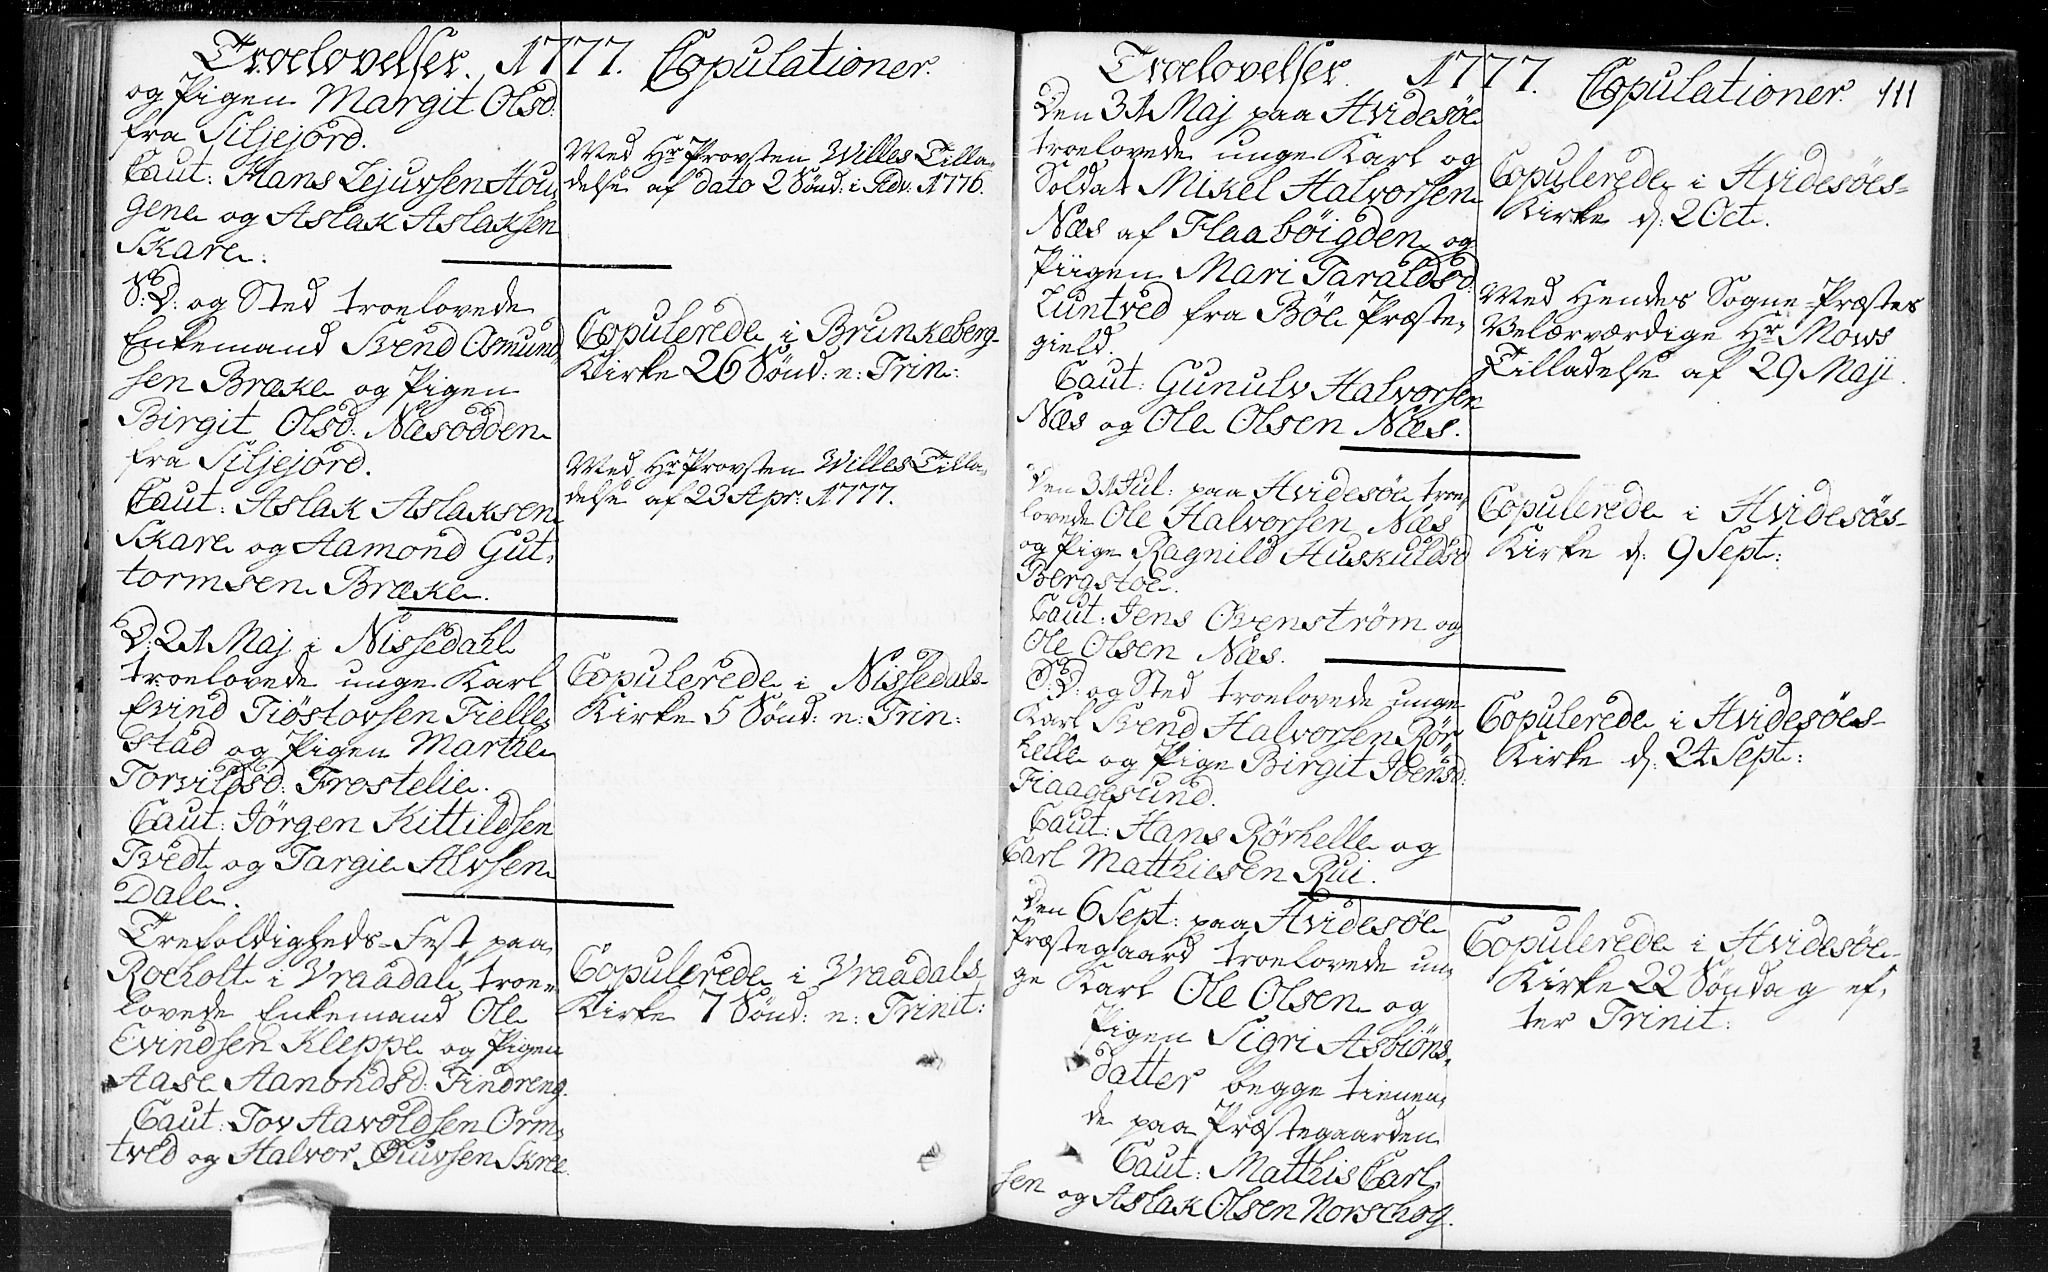 Troelovelser. 1777. Copulationer.
og Pigen Margit Olsd:
fra Siljejord.
Caut: Hans Lejuvsen Hou
gene og Aslak Aslaksen
Skare.
Med Hr Provsten Willes Tilla-
delse af dato 2 Sönd: i Adv. 1776.
S: D: og Sted troelovede
Enkemand Svend Osmund
sen Bræke og Pigen
Birgit Olsd: Næsodden
fra Siljejord.
Caut: Aslak Aslaksen
Skare og Aamond Gut-
tormsen Bræke.
Copulerede i Brunkeberg-
Kirke 26 Sönd: e: Trin:
Med Hr Provsten Willes Tilla-
delse af 23 Apr. 1777.
D: 21 Maj i Nissedahl
troelovede unge Karl
Evind Tiöstovsen Fielle-
stad og Pigen Marthe
Torvildsd: Frostelie.
Caut: Jörgen Kittildsen
Tvedt og Targie Alvsen
Dale.
Copulerede i Nissedals-
Kirke 5 Sönd: e: Trin:
Trefoldigheds-Fest paa
Roeholt i Vraadal troe-
lovede Enkemand Ole
Evindsen Kleppe og Pigen
Aase Aamondsd: Findreng.
Caut: Tov Aavoldsen Orm-
tved og Halvor Siuvsen Skree
Copulerede i Vraadals
Kirke 7 Sönd: e: Trinit:
Troelovelser. 1777. Copulationer. 111
Den 31 Maj paa Hvidesöe
troelovede unge Karl og
Soldat Mikel Halvorsen
Næs af Flaabøigden og
Piigen Mari Taraldsd:
Luntved fra Böe Præste-
gield.
Caut: Gunulv Halvorsen
Næs og Ole Olsen Næs.
Copulerede i Hvidesöes-
Kirke d: 2 Oct.
Med Hendes Sogne-Præstes
Velærværdige Hr Mows
Tilladelse af 29 Maji.
Den 31 Jul: paa Hvidesöe troe-
lovede Ole Halvorsen Næs
og Pige Ragnild Huskuldsd
Bergstoe.
Caut: Jens Ovenström og
Ole Olsen Næs.
Copulerede i Hvidesöes-
Kirke d: 9 Sept:
S: D: og Sted troelovede unge
Karl Svend Halvorsen Rör-
helle og Pige Birgit Ibensd:
Fiaagesund.
Caut: Hans Rörhelle og
Carl Matthiesen Rui.
Copulerede i Hvidesöes-
Kirke d: 24 Sept:
Den 6 Sept: paa Hvidesöe
Præstegaard troelovede un-
ge Karl Ole Olsen og
Pigen Sigri Asbiöns-
datter begge tienen-
de paa Præstegaarden
Caut: Matthis Carl-
sen og Aslak Olsen Norschog.
Copulerede i Hvidesöe-
Kirke 22 Söndag ef-
ter Trinit: